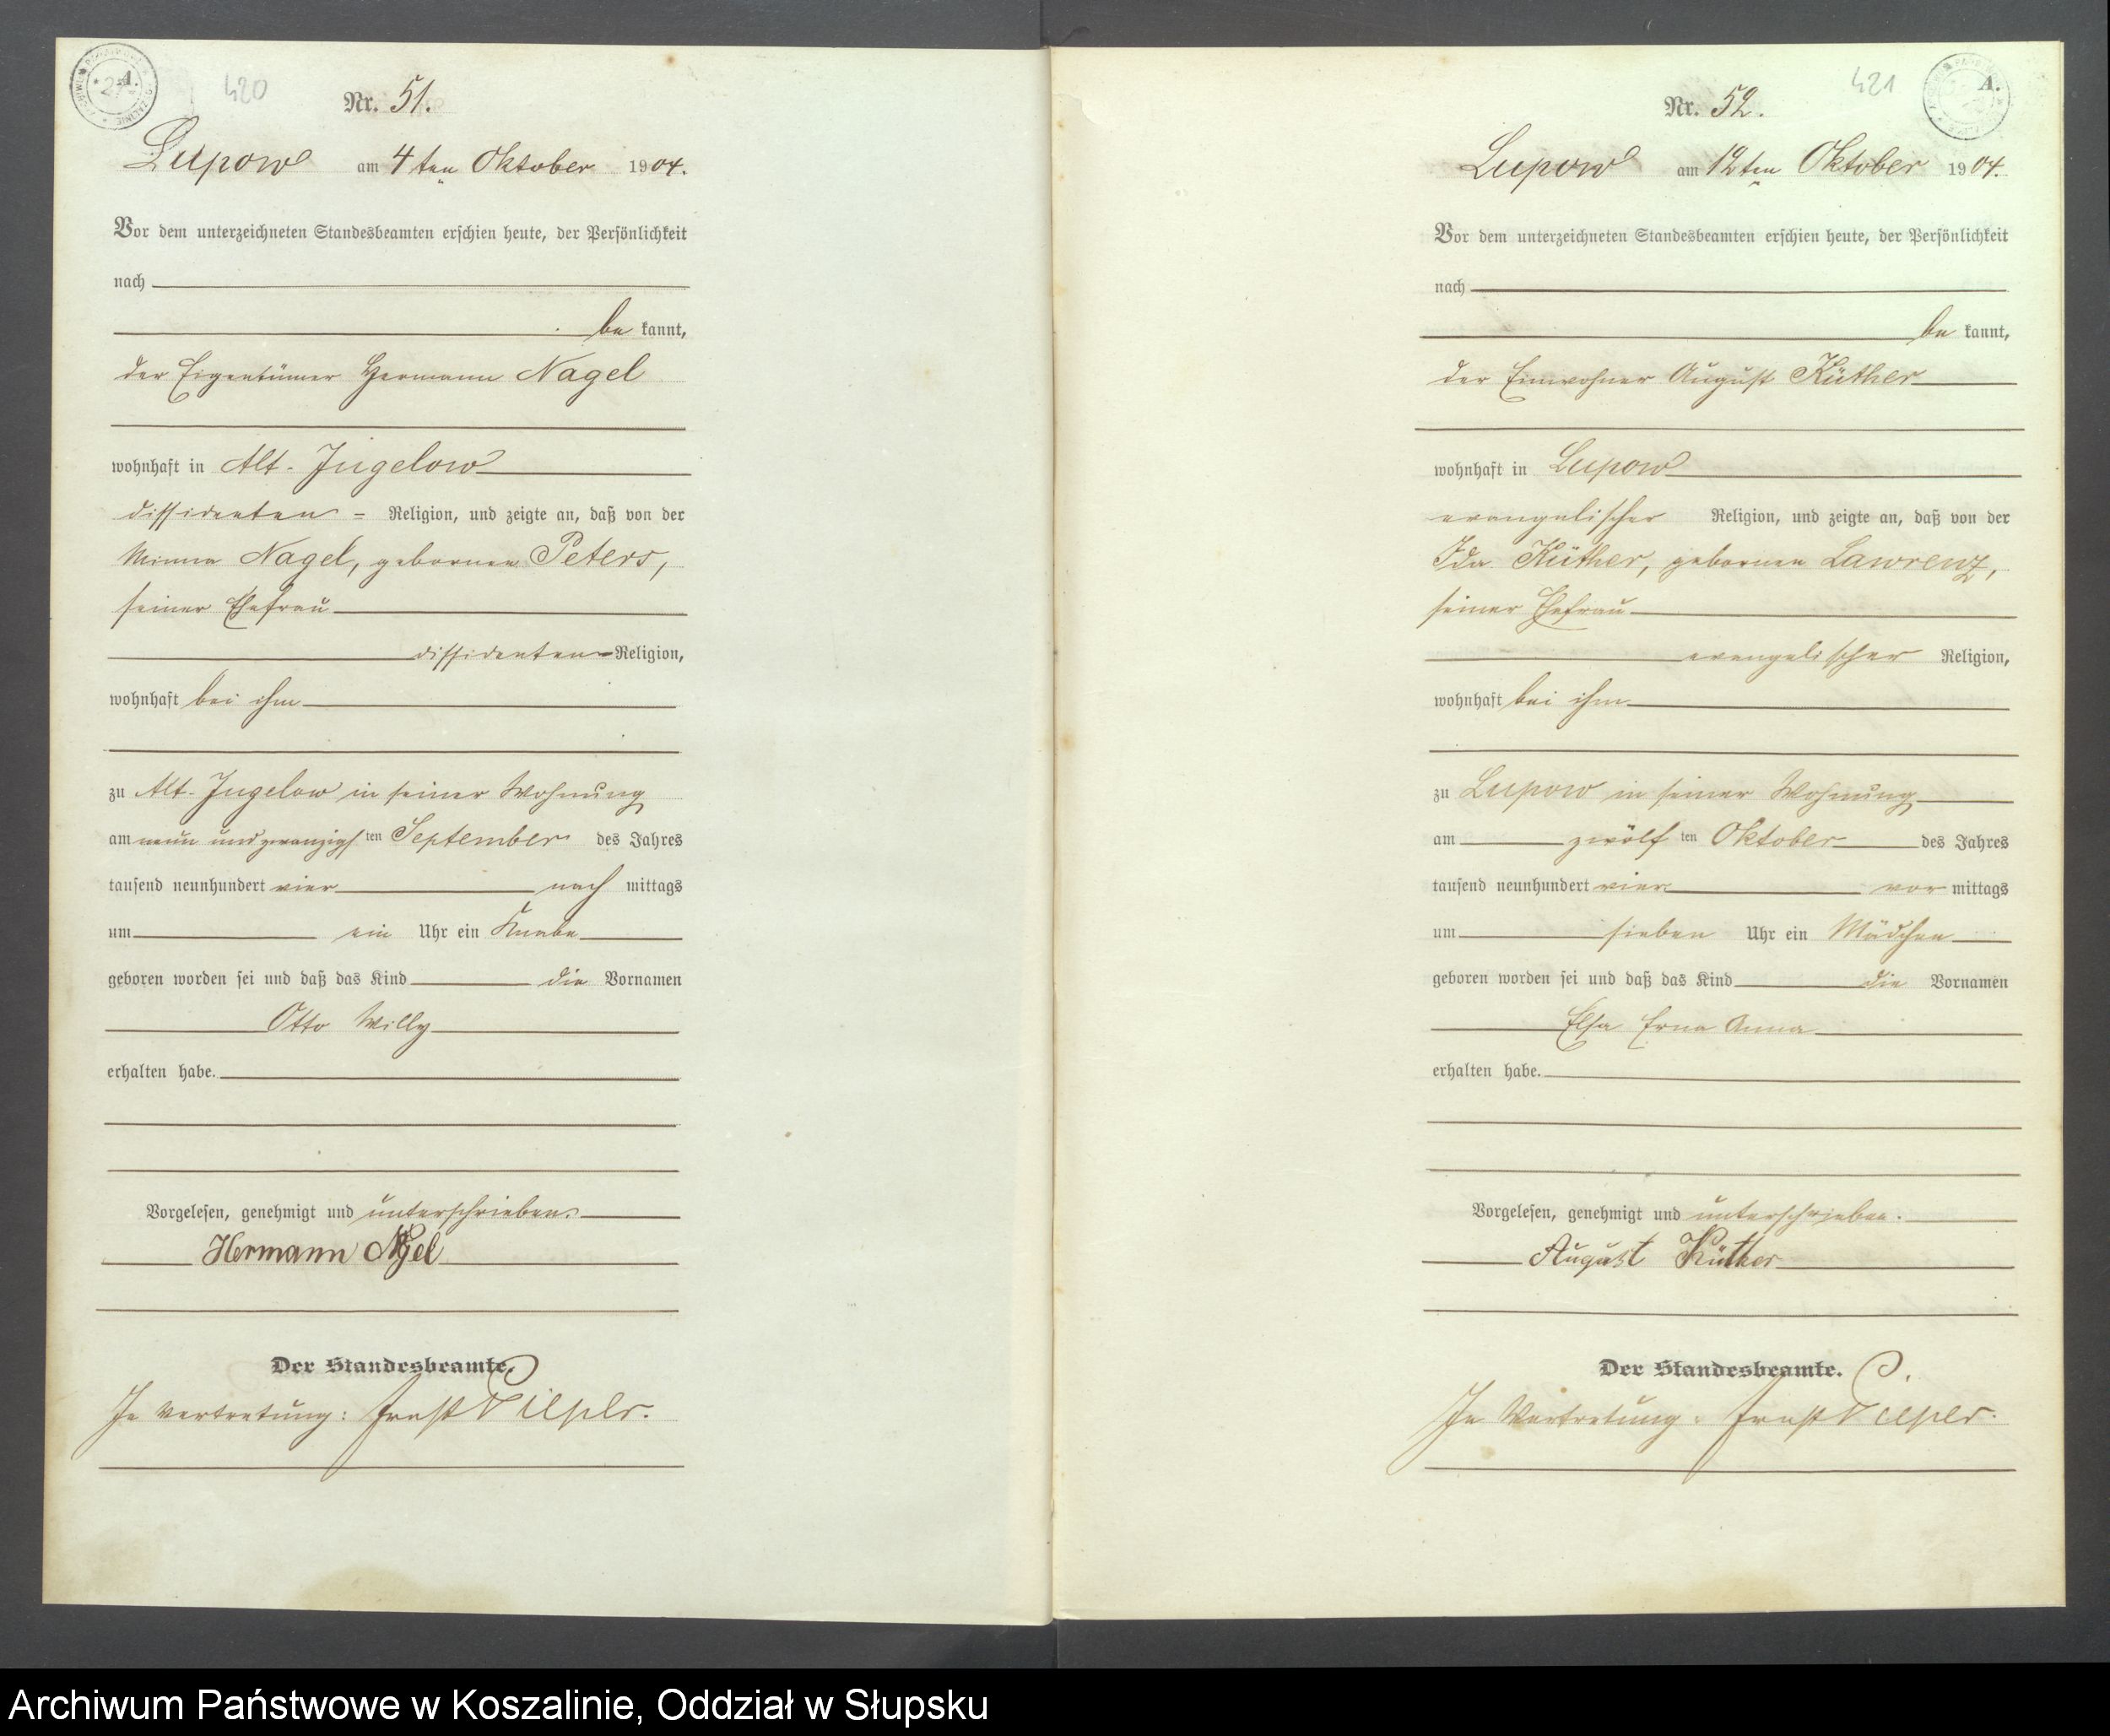 A.
420
Nr. 51.
Lupow am 4ten Oktober 1904.
Vor dem unterzeichneten Standesbeamten erschien heute, der Persönlichkeit
nach
be kannt,
der Eigentümer Hermann Nagel
wohnhaft in Alt-Jugelow
dissidenten - Religion, und zeigte an, daß von der
Minna Nagel, geborenen Peters,
seiner Ehefrau
dissidenten - Religion,
wohnhaft bei ihm
zu Alt-Jugelow in seiner Wohnung
am neun und zwanzigsten September des Jahres
tausend neunhundert vier nach mittags
um ein Uhr ein Knabe
geboren worden sei und daß das Kind die Vornamen
Otto Willy
erhalten habe.
Vorgelesen, genehmigt und unterschrieben.
Hermann Nagel
Der Standesbeamte.
In Vertretung: Ernst Pieper.
421
A.
Nr. 52.
Lupow am 12ten Oktober 1904.
Vor dem unterzeichneten Standesbeamten erschien heute, der Persönlichkeit
nach
be kannt,
der Einwohner August Küther
wohnhaft in Lupow
evangelischer Religion, und zeigte an, daß von der
Ida Küther, geborenen Lawrenz,
seiner Ehefrau
evangelischer Religion,
wohnhaft bei ihm
zu Lupow in seiner Wohnung
am zwölf ten Oktober des Jahres
tausend neunhundert vier vor mittags
um sieben Uhr ein Mädchen
geboren worden sei und daß das Kind die Vornamen
Elsa Erna Anna
erhalten habe.
Vorgelesen, genehmigt und unterschrieben.
August Küther
Der Standesbeamte.
In Vertretung: Ernst Pieper.
Archiwum Państwowe w Koszalinie, Oddział w Słupsku